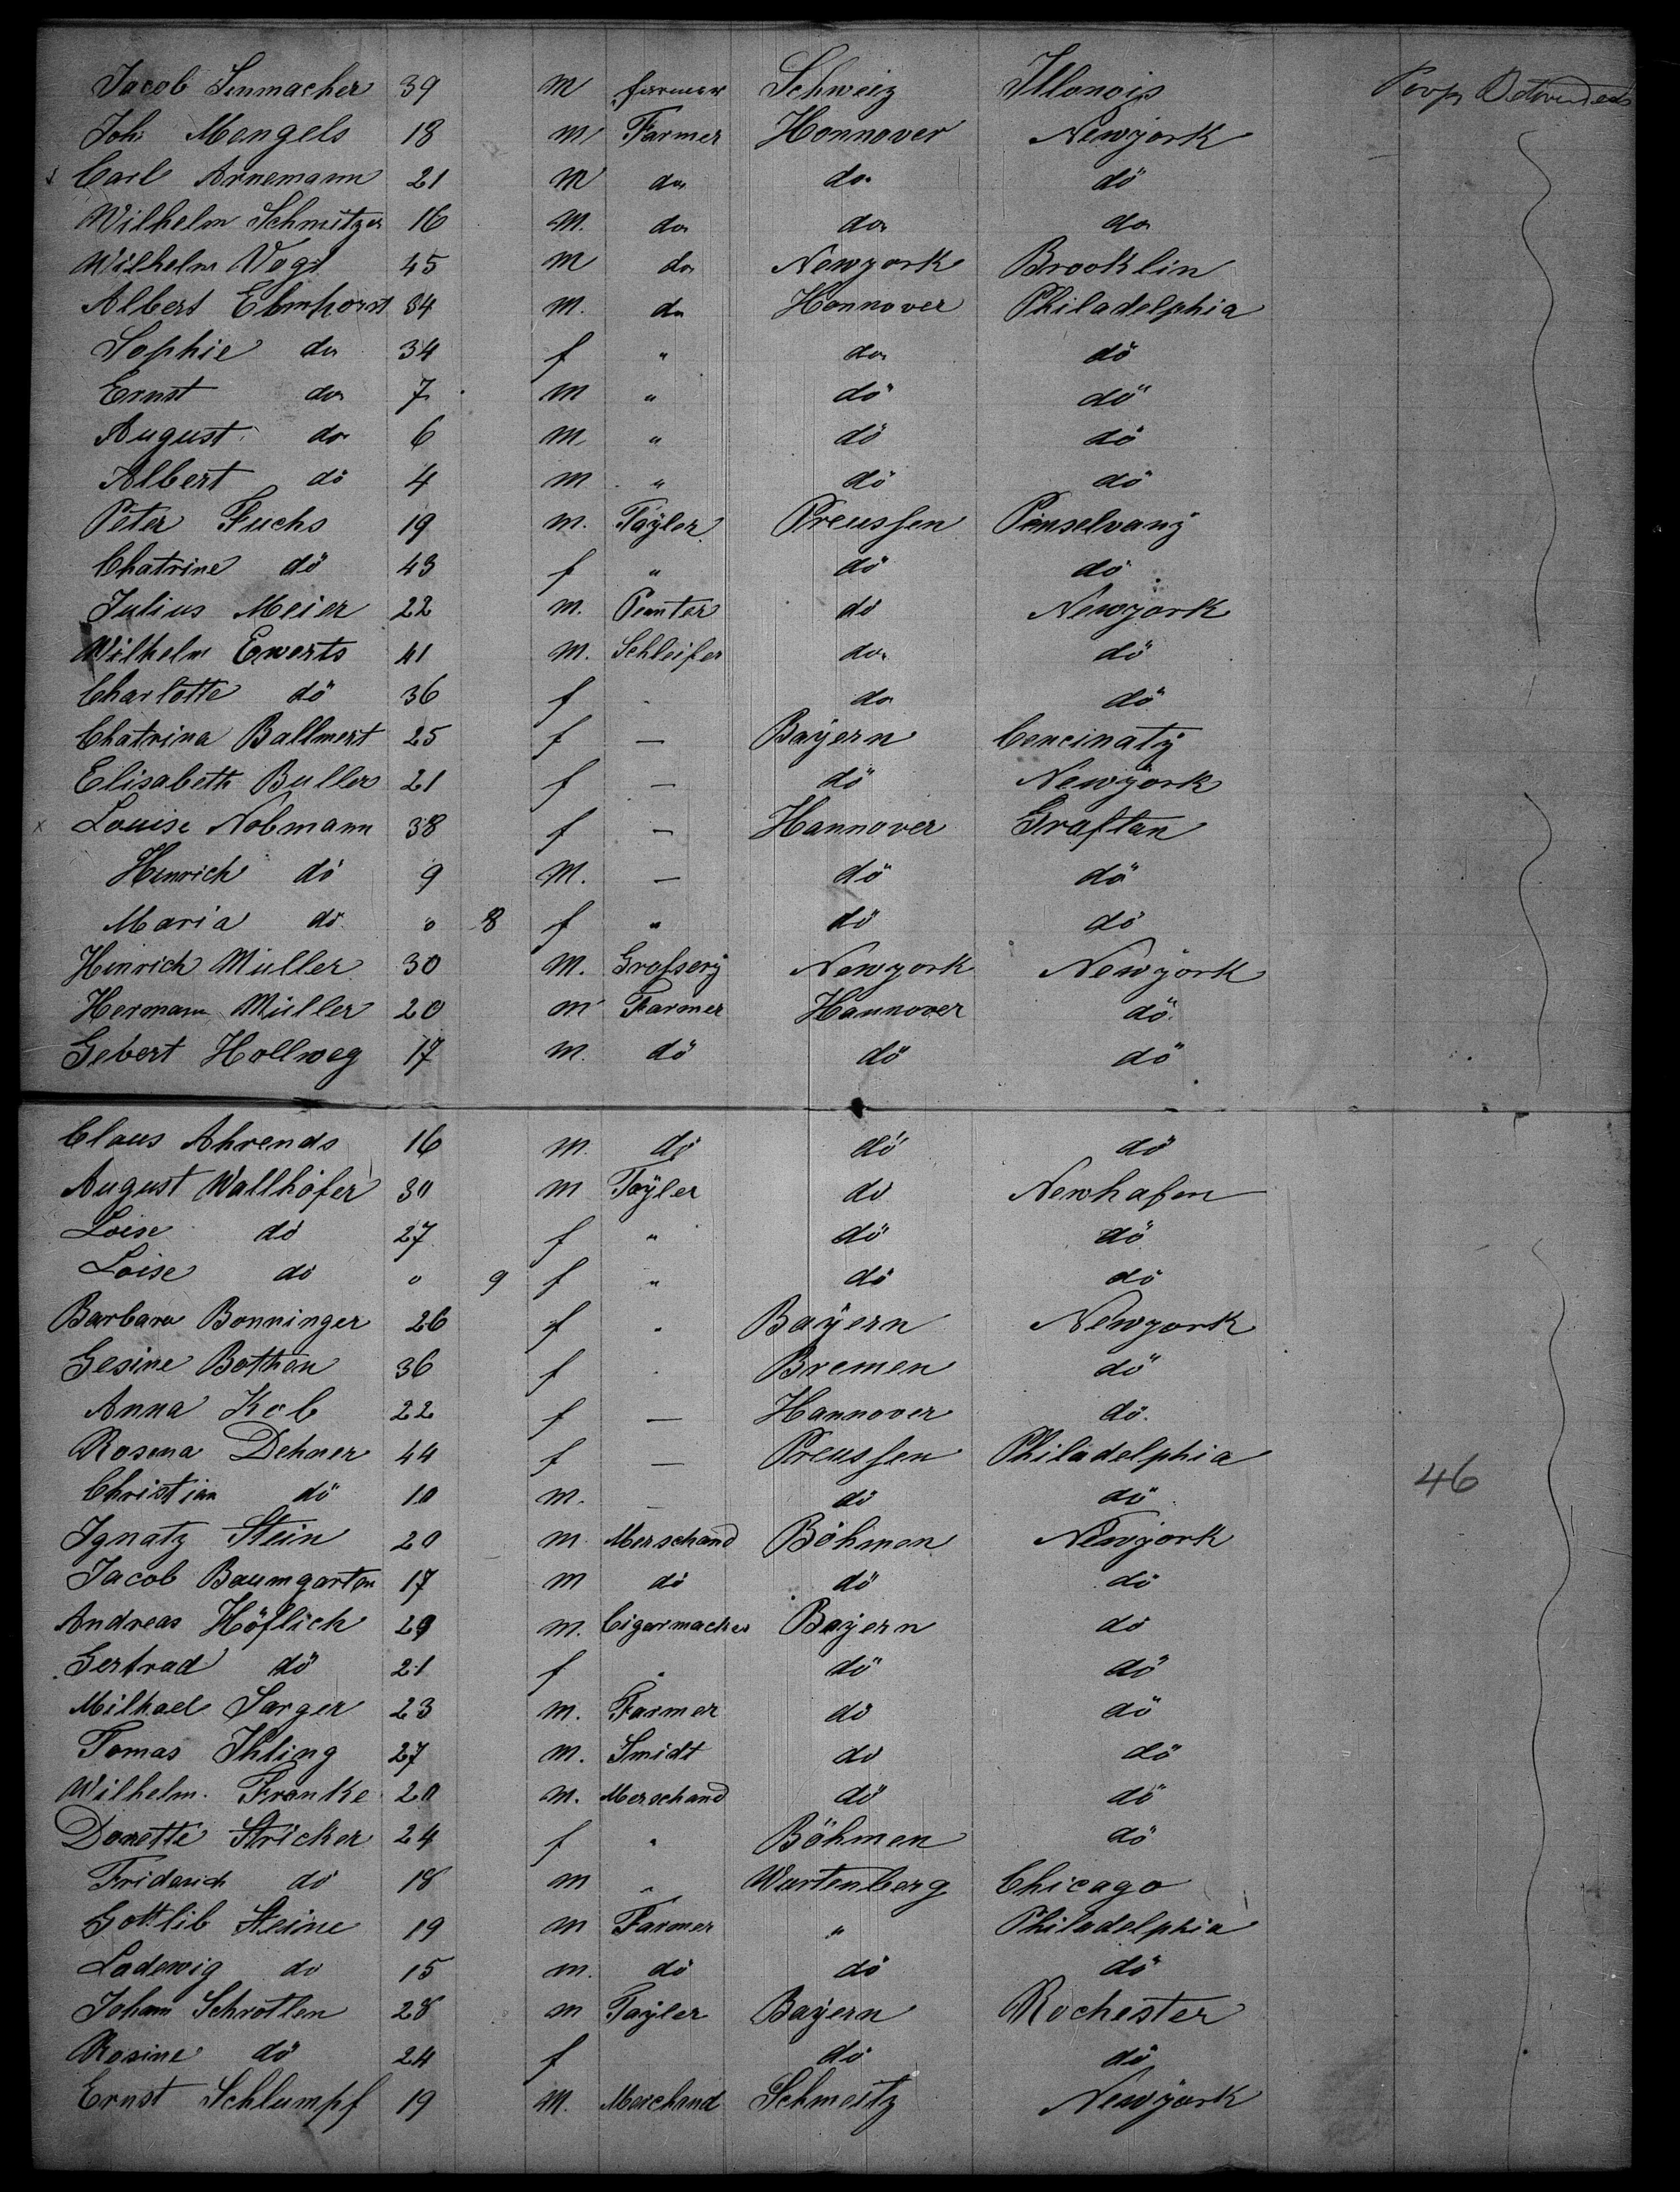 Jacob Senmacher 39 m farmer Schweiz Illonois Poop Betwendeds
Joh Mengels 18 m Farmer Honnover Newyork
Carl Arnemann 21 m do do do
Wilhelm Schmitzer 16 m. do do do
Wilhelm Vogt 45 m do Newyork Brooklin
Albert Elmhorst 34 m. do Honnover Philadelphia
Sophie do 34 f " do do
Ernst do 7 m " do do
August do 6 m " do do
Albert do 4 m " do do
Peter Fuchs 19 m. Tayler Preussen Pinselvany
Chatrine do 43 f " do do
Julius Meier 22 m. Peinter do Newyork
Wilhelm Ewerts 41 m. Schleifer do do
Charlotte do 36 f - do do
Chatrina Ballmert 25 f — Bayern Cencinaty
Elisabeth Buller 21 f — do Newyork
x Louise Nobmann 38 f — Hannover Graftan
Heinrich do 9 m. — do do
Maria do 0 8 f " do do
Heinrich Müller 30 m. Grofsery Newyork Newyork
Hermann Müller 20 m Farmer Hannover do
Gebert Hollweg 17 m. do do do
Claus Ahrends 16 m. do do do
August Wallhöfer 30 m Tayler do Newhafen
Loise do 27 f " do do
Loise do 0 9 f " do do
Barbara Bonninger 26 f . Bayern Newyork
Gesine Bothen 36 f . Bremen do
Anna Kob 22 f — Hannover do.
Rosena Dehner 44 f — Preussen Philadelphia
Christian do 10 m. — do do 46
Ignatz Stein 20 m Merschand Böhmen Newyork
Jacob Baumgarten 17 m do do do
Andreas Höflich 29 m. Cigarmacher Bayern do
Gertrad do 21 f . do do
Milhael Sarger 23 m. Farmer do do
Tomas Ihling 27 m. Smidt do do
Wilhelm. Franke 20 m. Merschand do do
Donette Stricker 24 f " Böhmen do
Friderich do 18 m " Wurtenberg Chicago
Gottlib Steine 19 m Farmer " Philadelphia
Ladewig do 15 m. do do do
Johann Schrotlen 28 m Tayler Bayern Rochester
Rosine do 24 f do do
Ernst Schlumpf 19 m. Merchand Schweitz Newyork